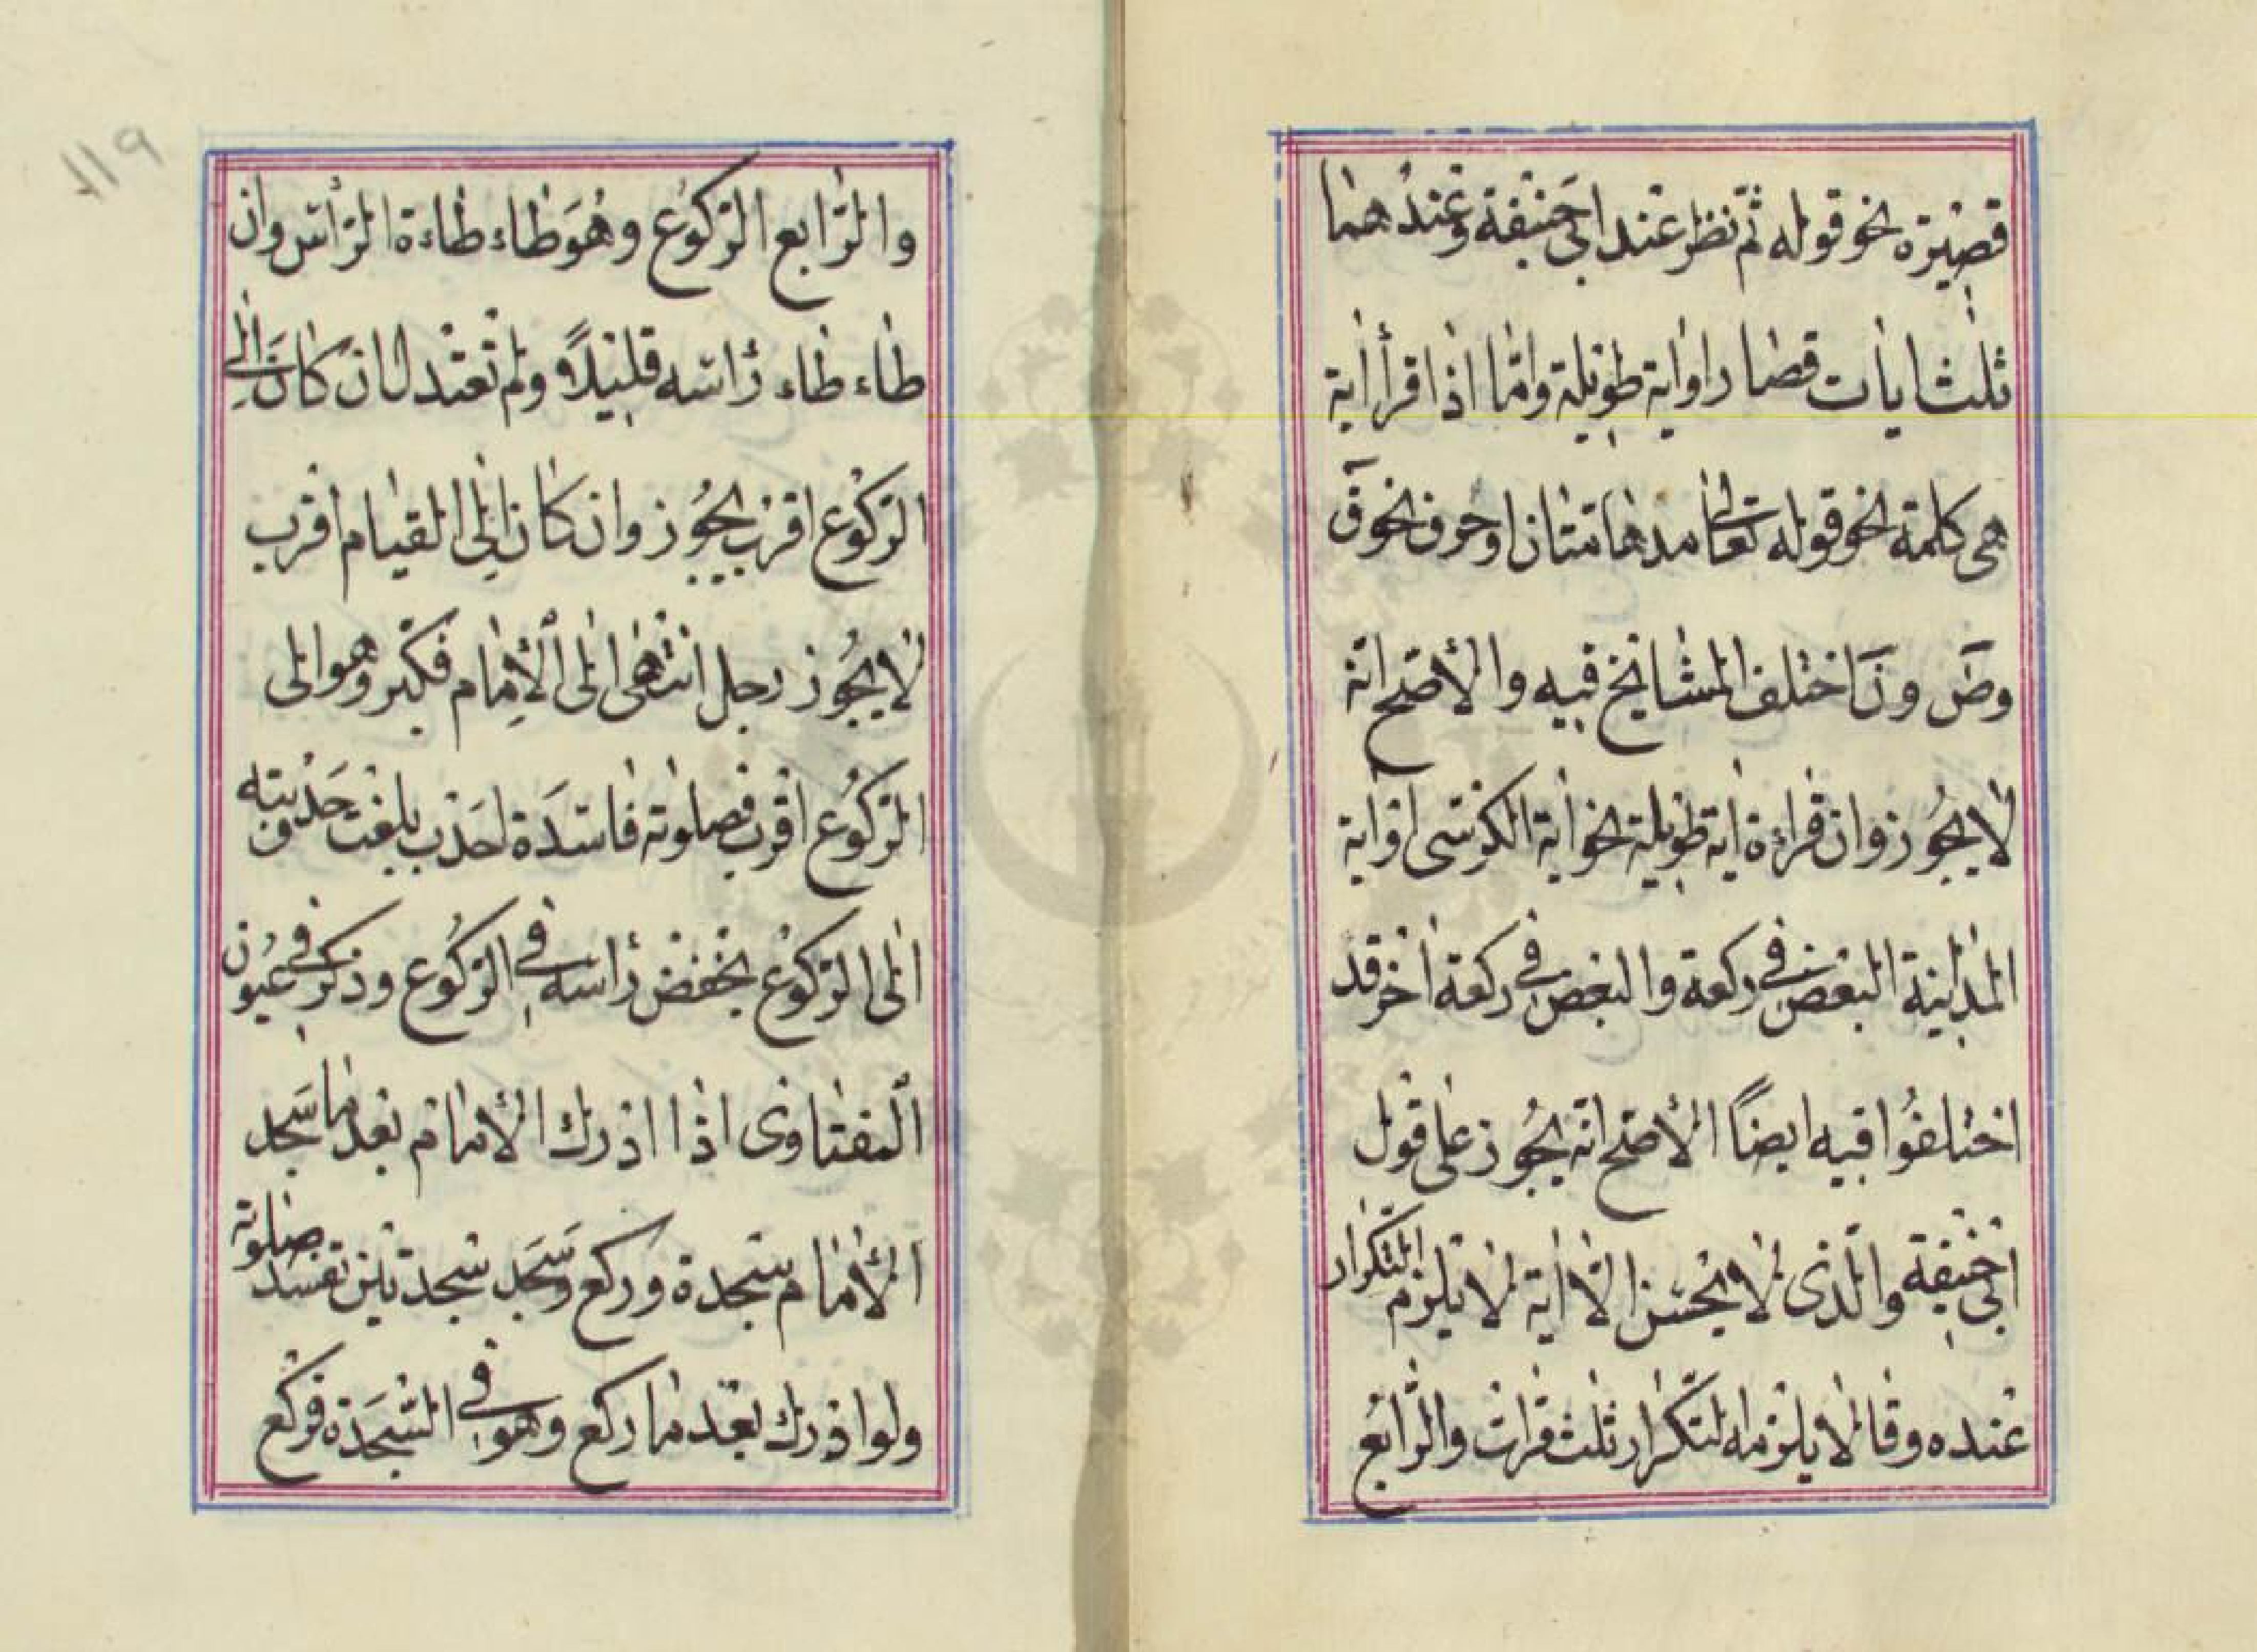 قصيرة نحو قوله ثم نظر عند ابي حنيفة وعندهما
ثلث ايات قصار او اية طويلة واما اذا قرأ اية
هي كلمة نحو قوله تعالى مدهامتان او حرف نحو ق
وص ون اختلف المشايخ فيه والأصح انه
لا يجوز وان قراءة اية طويلة نحو اية الكرسى او اية
المداينة البعض في ركعة والبعض في ركعة اخر قد
اختلفوا فيه ايضاً الأصح انه يجوز على قول
ابي حنيفة والذى لا يحسن الا اية لا يلزم التكرار
عنده وقالا يلزمه التكرار ثلث قرات والرابع
١١٩
والرابع الركوع وهو طاءطاءة الرأس وان
طاءطاء رأسه قليلاً ولم تعتدل ان كان الى
الركوع اقرب يجوز وان كان الى القيام اقرب
لا يجوز رجل انتهى الى الأمام فكبر وهو الى
الركوع اقرب فصلوته فاسدة احدب بلغت حدبته
الى الركوع يخفض رأسه في الركوع وذكر في عيون
الفتاوى اذا ادرك الأمام بعد ما سجد
الأمام سجدة وركع وسجد سجدتين تفسد صلوته
ولو ادرك بعد ما ركع وهو في السجدة فركع